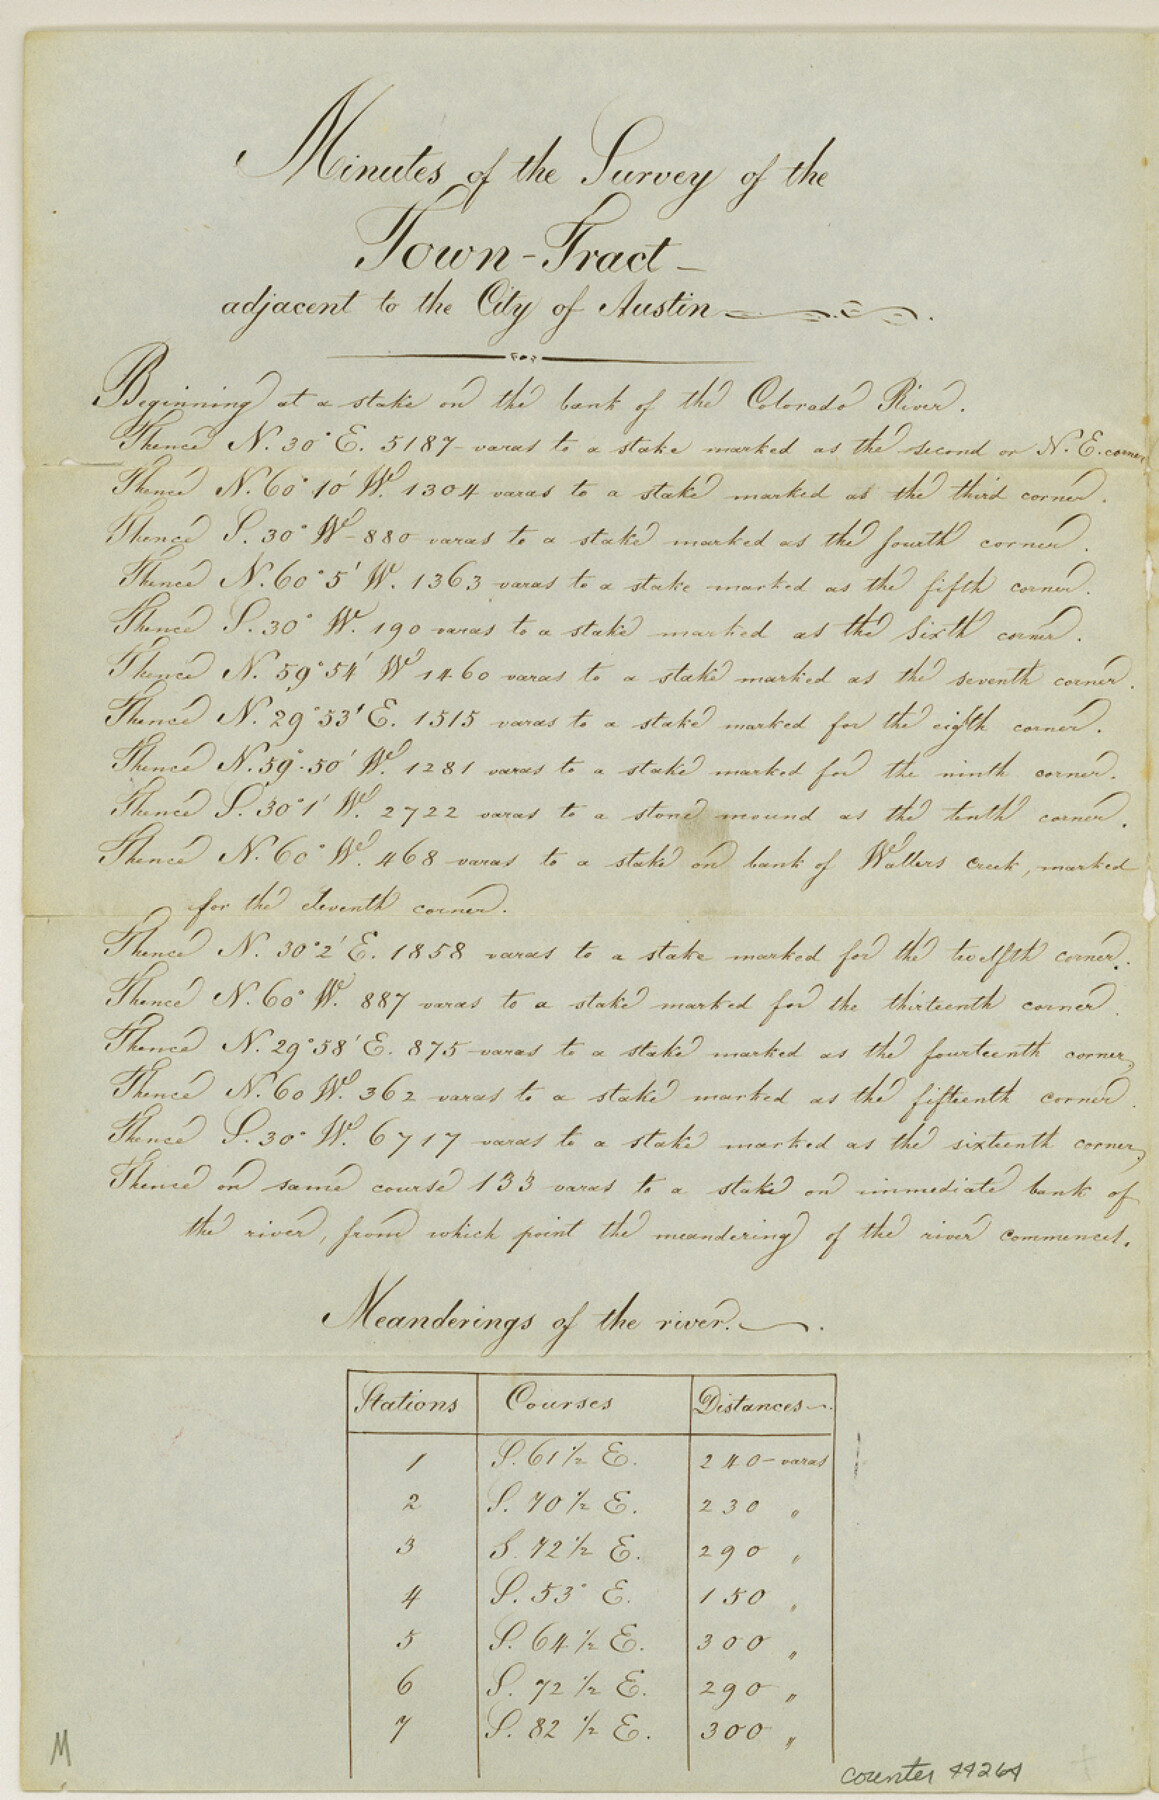 Minutes of the Survey of the
Town-Tract-
adjacent to the City of Austin
Beginning at a stake on the bank of the Colorado River.
Thence N. 30° E. 5187 varas to a stake marked as the second or N. E. corner
Thence N. 60° 10' W. 1304 varas to a stake marked as the third corner.
Thence S. 30° W- 880 varas to a stake marked as the fourth corner.
Thence N. 60° 5' W. 1363 varas to a stake marked as the fifth corner.
Thence S. 30° W. 190 varas to a stake marked as the sixth corner.
Thence N. 59° 54' W 1460 varas to a stake marked as the seventh corner.
Thence N. 29° 53' E. 1515 varas to a stake marked for the eighth corner.
Thence N. 59°. 50' W. 1281 varas to a stake marked for the ninth corner.
Thence S. 30° 1' W. 2722 varas to a stone mound as the tenth corner.
Thence N. 60° W. 468 varas to a stake on bank of Wallers creek, marked
for the eleventh corner.
Thence N. 30° 2' E. 1858 varas to a stake marked for the twelfth corner.
Thence N. 60° W. 887 varas to a stake marked for the thirteenth corner.
Thence N. 29° 58' E. 875 varas to a stake marked as the fourteenth corner,
Thence N. 60 W. 362 varas to a stake marked as the fifteenth corner.
Thence S. 30° W. 6717 varas to a stake marked as the sixteenth corner,
Thence on same course 133 varas to a stake on immediate bank of
the river, from which point the meandering of the river commences.
Meanderings of the river.
Stations Courses Distances
1 S. 61 1/2 E. 240 - varas
2 S. 70 1/2 E. 230 "
3 S. 72 1/2 E. 290 "
4 S. 53° E. 150 "
5 S. 64 1/2 E. 300 "
6 S. 72 1/2 E. 290 "
7 S. 82 1/2 E. 300 "
M
counter 44264